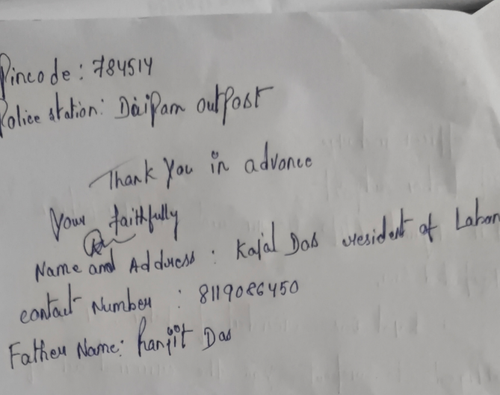 Pincode: 784514
Police station: Daipam outpost
Thank You in advance
Your faithfully
Name and Address : Kajal Das resident of
contact Number : 8119086450
Father Name: Ranjit Das